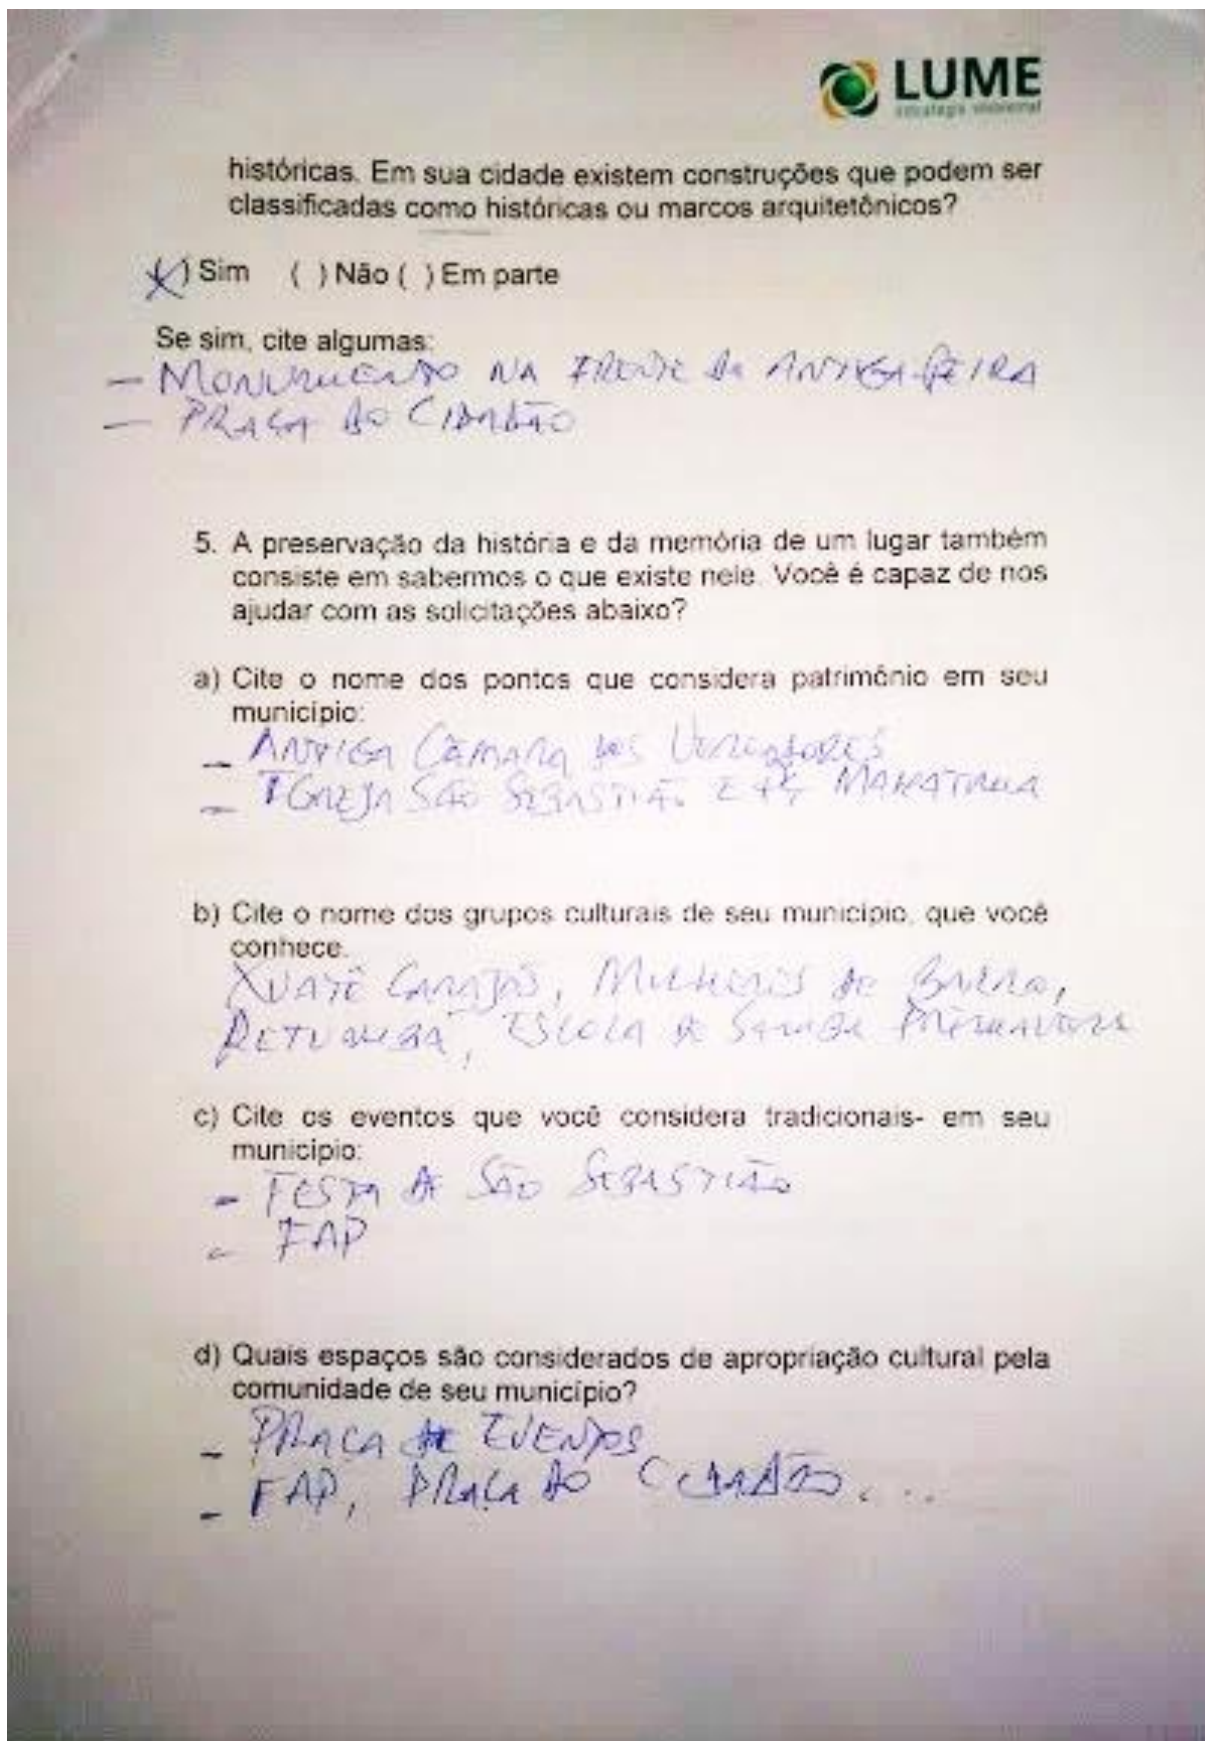 LUME
estratégia ambiental
históricas. Em sua cidade existem construções que podem ser
classificadas como históricas ou marcos arquitetônicos?
(X) Sim ( ) Não ( ) Em parte
Se sim, cite algumas:
- MONUMENTO NA FRENTE DA ANTIGA FEIRA
- PRAÇA DO CIDADÃO
5. A preservação da história e da memória de um lugar também
consiste em sabermos o que existe nele. Você é capaz de nos
ajudar com as solicitações abaixo?
a) Cite o nome dos pontos que considera patrimônio em seu
município:
- ANTIGA CÂMARA DOS VEREADORES
- IGREJA SÃO SEBASTIÃO E
b) Cite o nome dos grupos culturais de seu município, que você
conhece.
XUATÊ CARAJÁS, MULHERES DE BARRO,
RETUMBA, ESCOLA DE SAMBA
c) Cite os eventos que você considera tradicionais- em seu
município:
- FESTA DE SÃO SEBASTIÃO
- FAP
d) Quais espaços são considerados de apropriação cultural pela
comunidade de seu município?
- PRAÇA DE EVENTOS
- FAP, PRAÇA DO CIDADÃO...